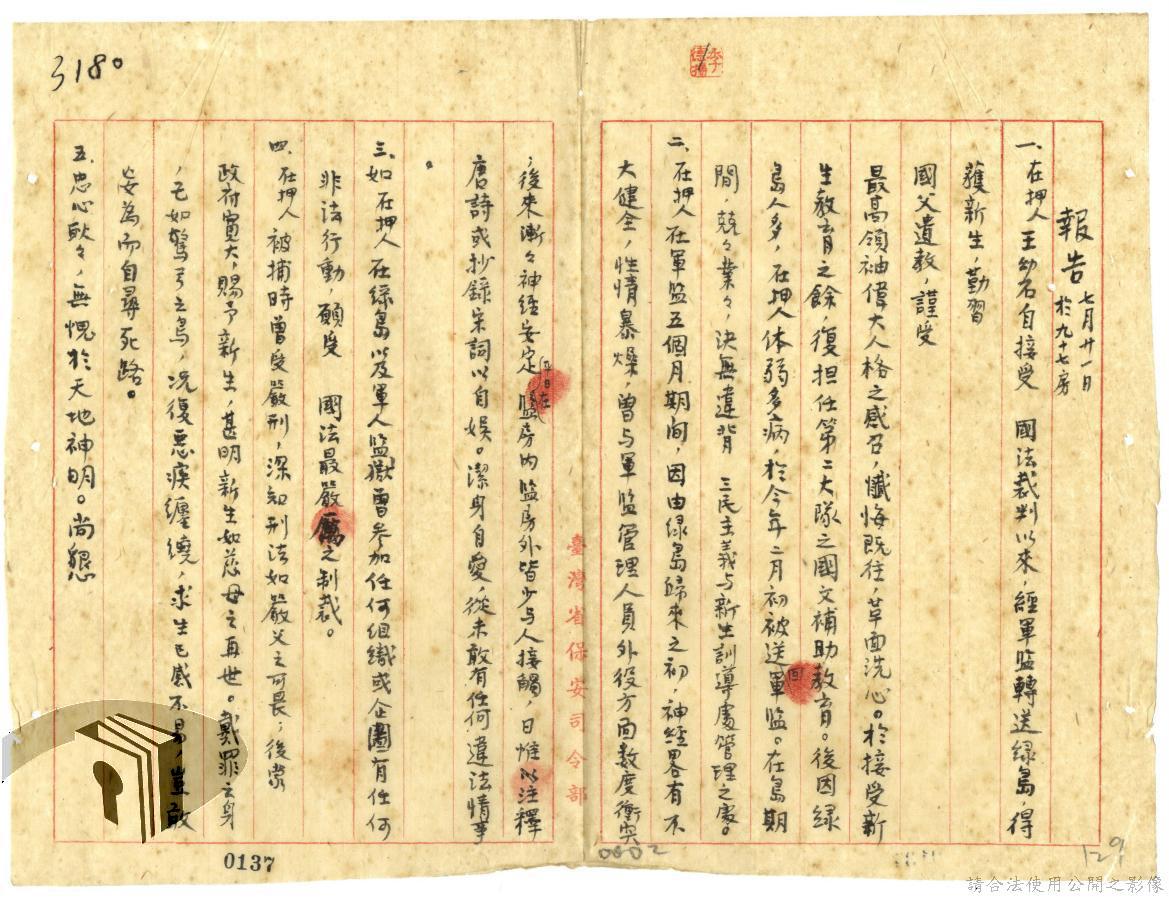 3180
報告 七月廿一日
於九十七房
一、在押人王幼石自接受　國法裁判以來，經軍監轉送綠島，得
獲新生，勤習
國父遺教，謹受
最高領袖偉大人格之感召，懺悔既往，革面洗心。於接受新
生教育之餘，復担任第二大隊之國文補助教育。後因綠
島人多，在押人体弱多病，於今年二月初被送回軍監。在島期
間，兢々業々，決無違背　三民主義与新生訓導處管理之處。
二、在押人在軍監五個月期间，因由綠島歸來之初，神經畧有不
大健全，性情暴燥，曾与軍監管理人員外役方面数度衝突
，後來漸々神經安定，平日在監房内監房外皆少与人接觸，日惟以注釋
唐詩或抄錄宋詞以自娛。潔身自愛，從未敢有任何違法情事
。
三、如在押人在綠島以及軍人監獄曾參加任何組織或企圖有任何
非法行動　願受　國法最嚴厲之制裁。
四、在押人被捕時曾受嚴刑，深知刑法如嚴父之可畏；後蒙
政府寬大，賜予新生，甚明新生如慈母之再世。戴罪之身
，已如驚弓之鳥，况復惡疾纏繞，求生已感不易，豈敢
妄為而自尋死路。
五、忠心耿々，無愧於天地神明。尚懇
臺灣省保安司令部
0137
0002
129
請合法使用公開之影像